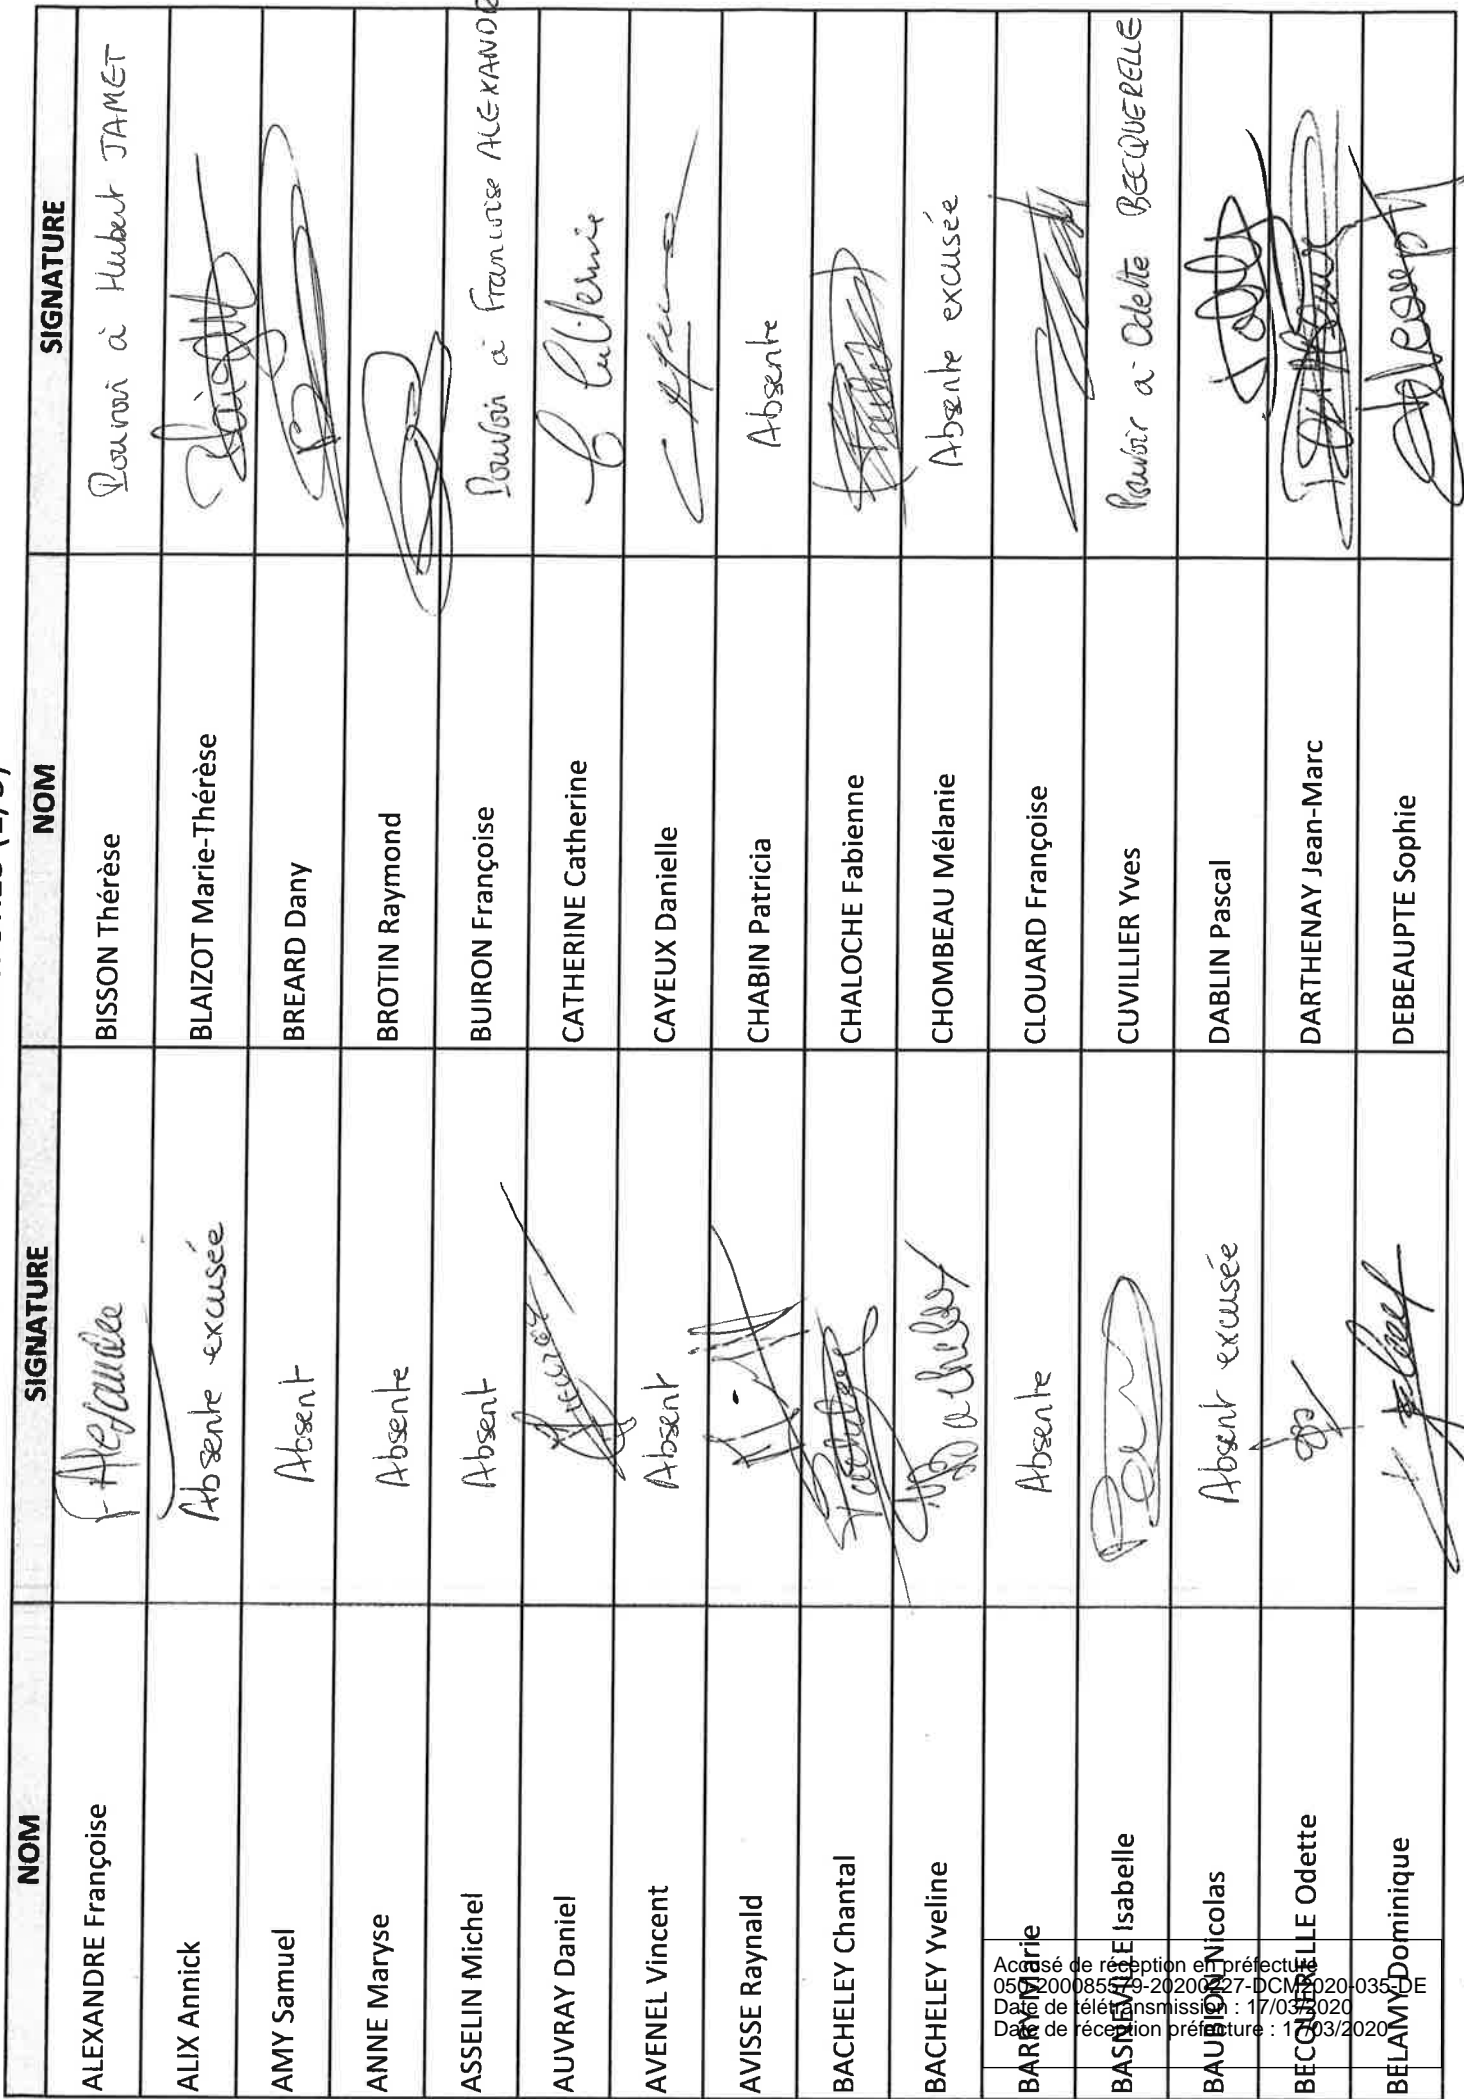 NOM SIGNATURE NOM SIGNATURE
ALEXANDRE Françoise F Alexandre BISSON Thérèse Pouvoir à Hubert JAMET
ALIX Annick Absente excusée BLAIZOT Marie-Thérèse
AMY Samuel Absent BREARD Dany
ANNE Maryse Absente BROTIN Raymond
ASSELIN Michel Absent BUIRON Françoise Pouvoir à Françoise ALEXANDRE
AUVRAY Daniel CATHERINE Catherine
AVENEL Vincent Absent CAYEUX Danielle
AVISSE Raynald CHABIN Patricia Absente
BACHELEY Chantal CHALOCHE Fabienne
BACHELEY Yveline CHOMBEAU Mélanie Absente excusée
BARRY Marie Absente CLOUARD Françoise
BASNEVILLE Isabelle CUVILLIER Yves Pouvoir à Odette BECQUERELLE
BAUBION Nicolas Absent excusée DABLIN Pascal
BECQUERELLE Odette DARTHENAY Jean-Marc
BELAMY Dominique DEBEAUPTE Sophie
Accusé de réception en préfecture
050-200085579-20200227-DCM2020-035-DE
Date de télétransmission : 17/03/2020
Date de réception préfecture : 17/03/2020